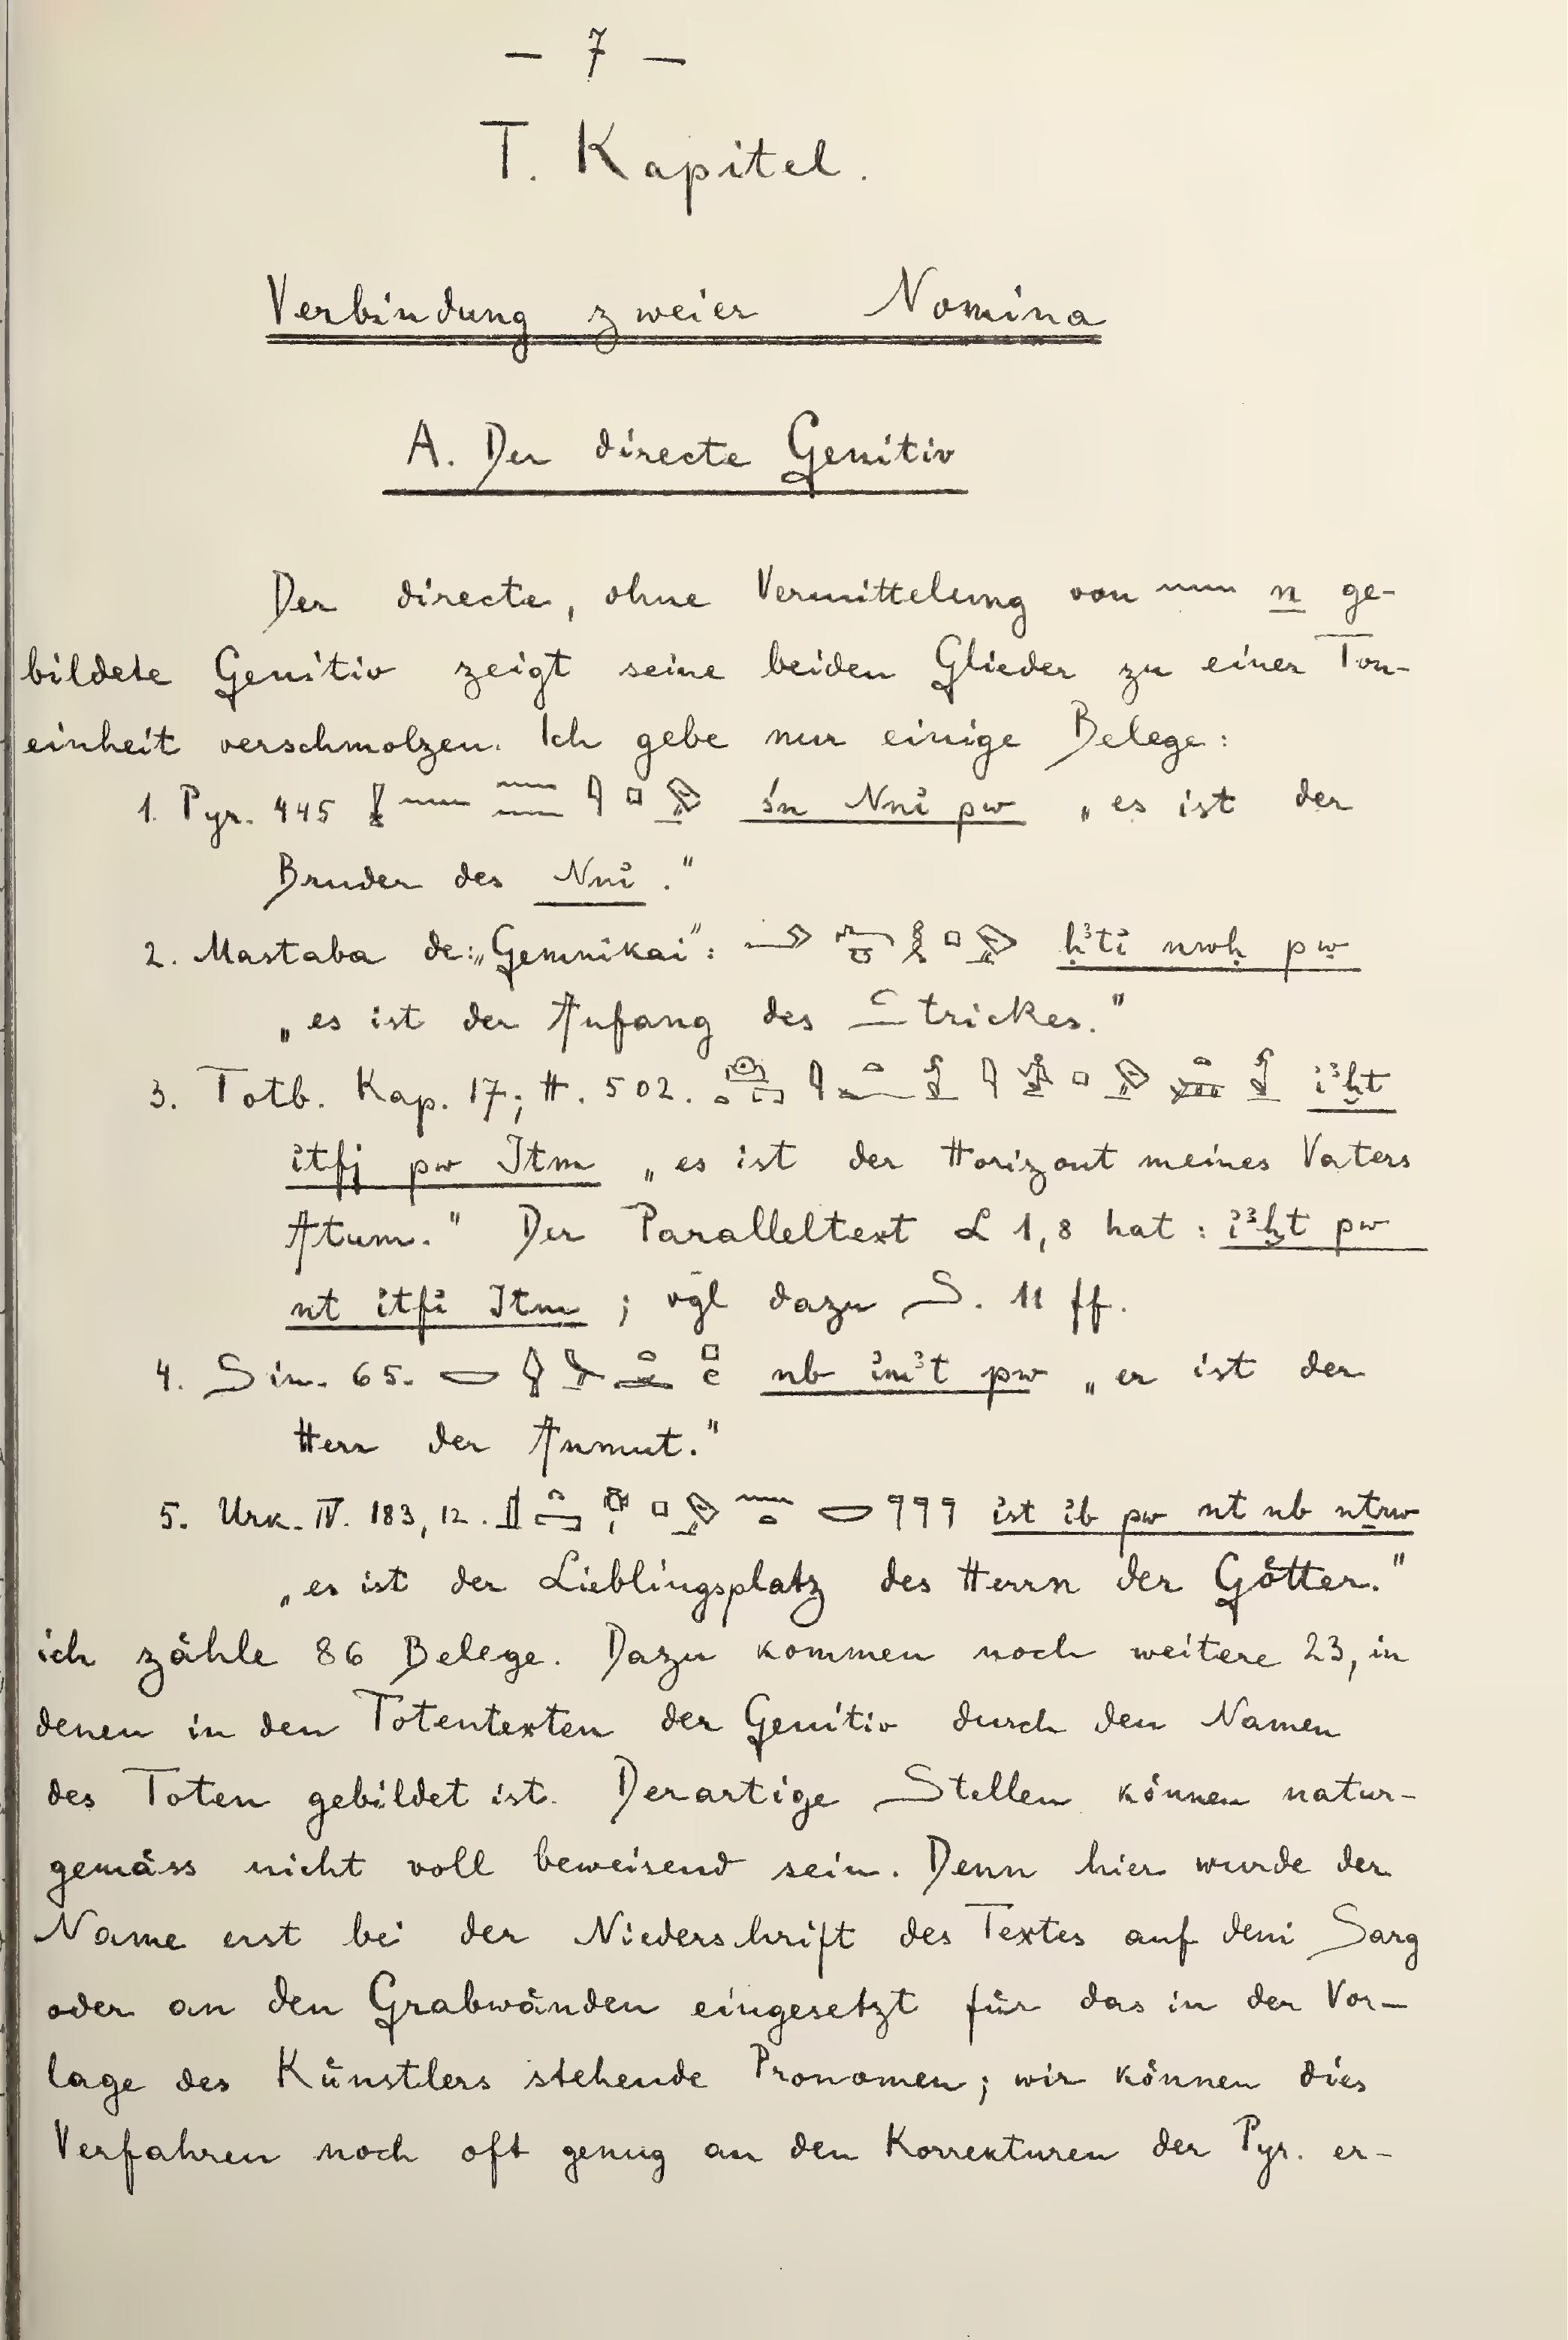 — 7 —
I. Kapitel.
Verbindung zweier Nomina
A. Der directe Genitiv
Der directe, ohne Vermittelung von 𓈖 n ge-
bildete Genitiv zeigt seine beiden Glieder zu einer Ton-
einheit verschmolzen. Ich gebe nur einige Belege:
1. Pyr. 445 śn Nni pw „es ist der
Bruder des Nni."
2. Mastaba de: „Gemnikai": ḥꜣti nwḥ pw
„es ist der Anfang des Strickes."
3. Totb. Kap. 17; H. 502. iꜣḫt
itfj pw Itm „es ist der Horizont meines Vaters
Atum." Der Paralleltext L 1,8 hat: iꜣḫt pw
nt itfi Itm; vgl dazu S. 11 ff.
4. Sin. 65. nb imꜣt pw „er ist der
Herr der Anmut."
5. Urk. IV. 183, 12. ist ib pw nt nb nṯrw
„es ist der Lieblingsplatz des Herrn der Götter."
ich zähle 86 Belege. Dazu kommen noch weitere 23, in
denen in den Totentexten der Genitiv durch den Namen
des Toten gebildet ist. Derartige Stellen können natur-
gemäss nicht voll beweisend sein. Denn hier wurde der
Name erst bei der Niederschrift des Textes auf dem Sarg
oder an den Grabwänden eingesetzt für das in der Vor-
lage des Künstlers stehende Pronomen; wir können dies
Verfahren noch oft genug an den Korrekturen der Pyr. er-